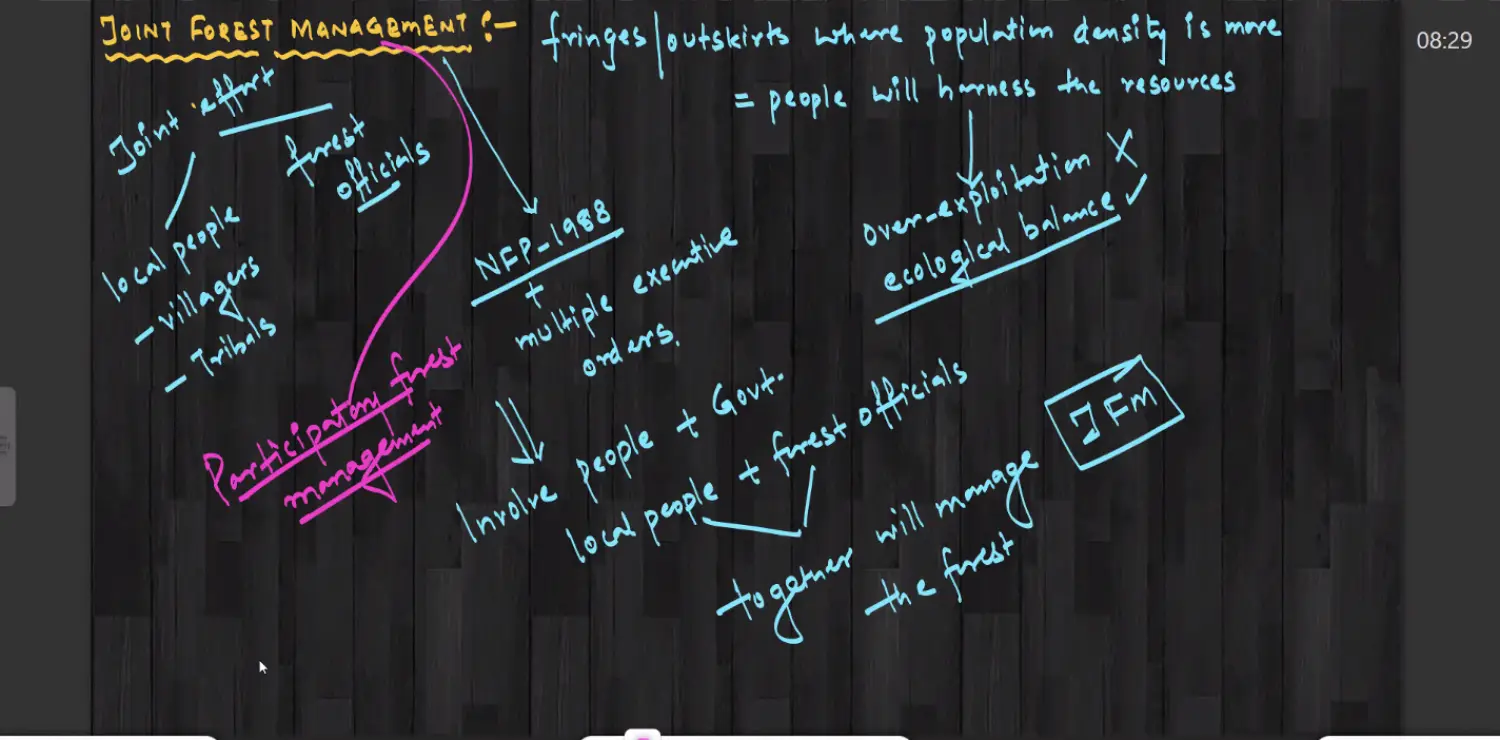 JOINT FOREST MANAGEMENT :-
fringes/outskirts where population density is more
= people will harness the resources
08:29
Joint effort
forest
officials
local people
- villagers
- Tribals
Participatory forest
management
NFP-1988
+
multiple executive
orders.
over-exploitation X
ecological balance ✓
Involve people + Govt.
local people + forest officials
together will manage
the forest
JFM